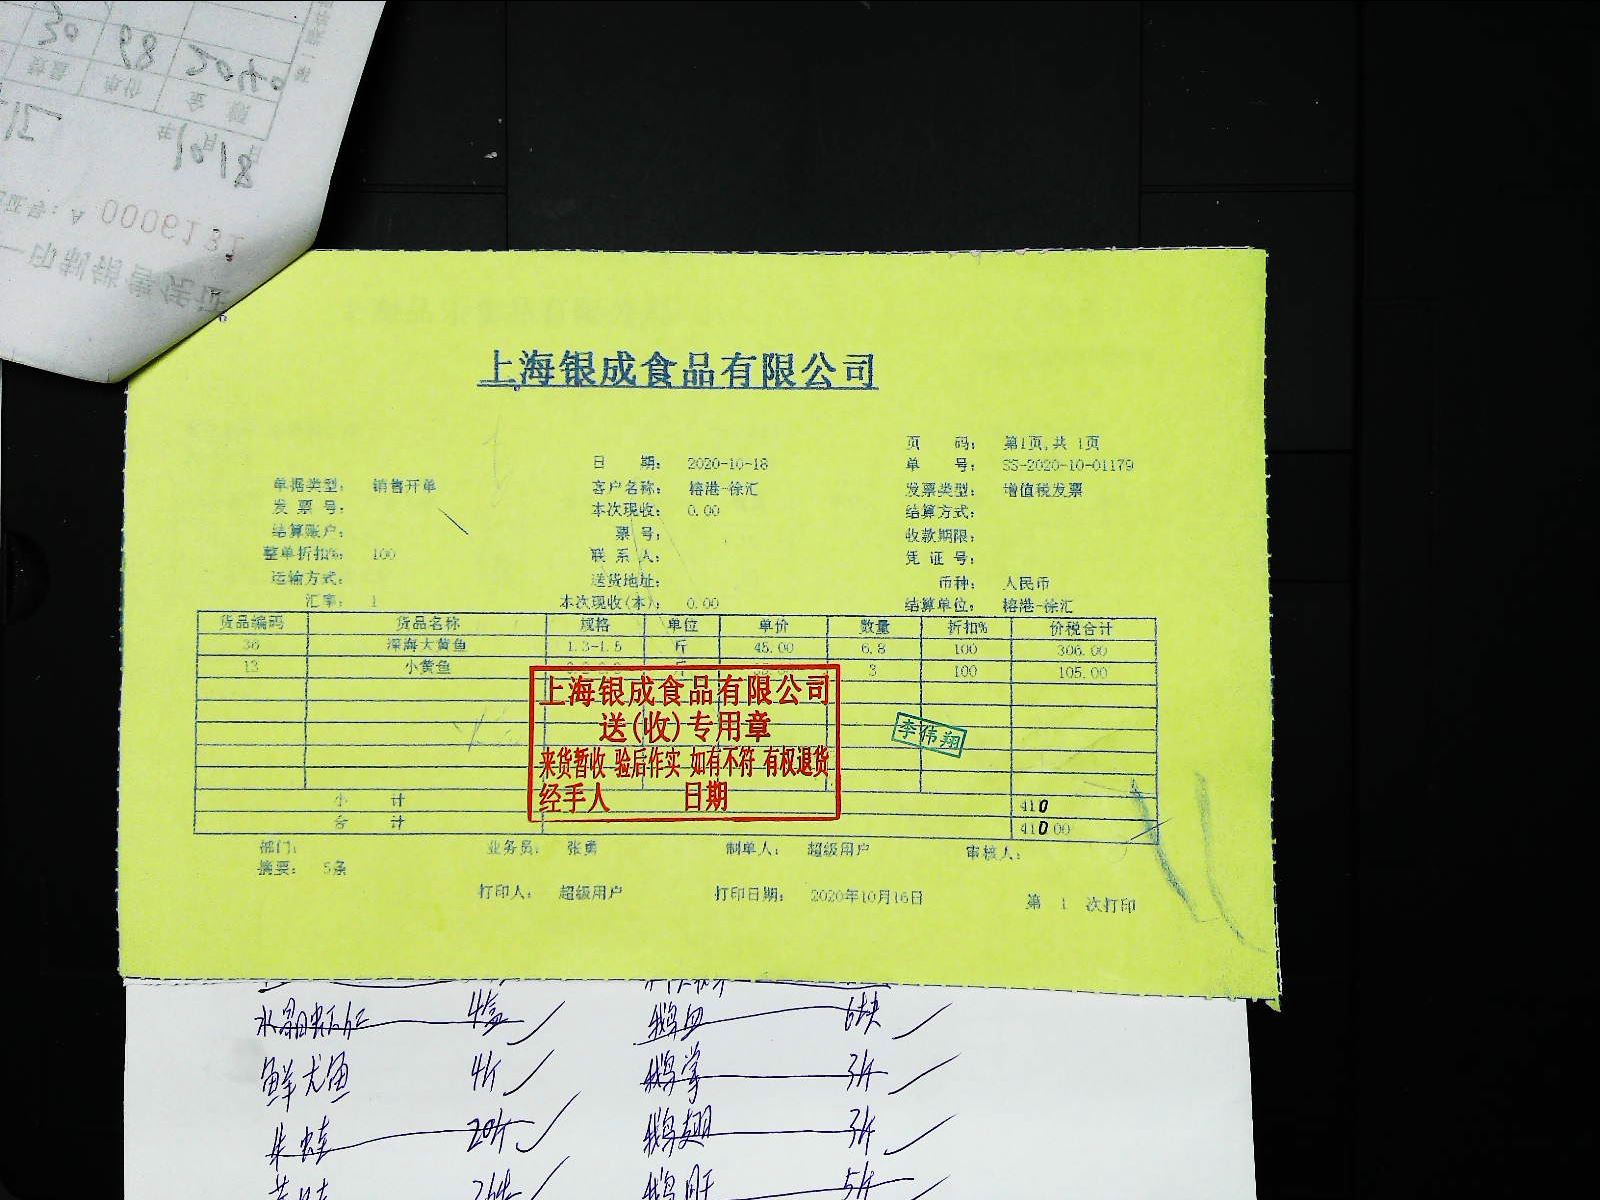 上海银成食品有限公司
页 码: 第1页,共 1页
日 期: 2020-10-18 单 号: SS-2020-10-01179
单据类型: 销售开单 客户名称: 榕港-徐汇 发票类型: 增值税发票
发 票 号: 本次现收: 0.00 结算方式:
结算账户: 票 号: 收款期限:
整单折扣%: 100 联 系 人: 凭 证 号:
运输方式: 送货地址: 币种: 人民币
汇率: 1 本次现收(本): 0.00 结算单位: 榕港-徐汇
货品编码 货品名称 规格 单位 单价 数量 折扣% 价税合计
36 深海大黄鱼 1.3-1.5 斤 45.00 6.8 100 306.00
13 小黄鱼 斤 3 100 105.00
上海银成食品有限公司
送(收)专用章
来货暂收 验后作实 如有不符 有权退货
经手人 日期
李伟翔
小 计 410
合 计 410.00
部门: 业务员: 张勇 制单人: 超级用户 审核人:
摘要: 5条
打印人: 超级用户 打印日期: 2020年10月16日 第 1 次打印
水晶虾仁 4盒 鹅血 6块
鲜尤鱼 4斤 鹅掌 3斤
牛蛙 20斤 鹅翅 3斤
5斤
A 0006131